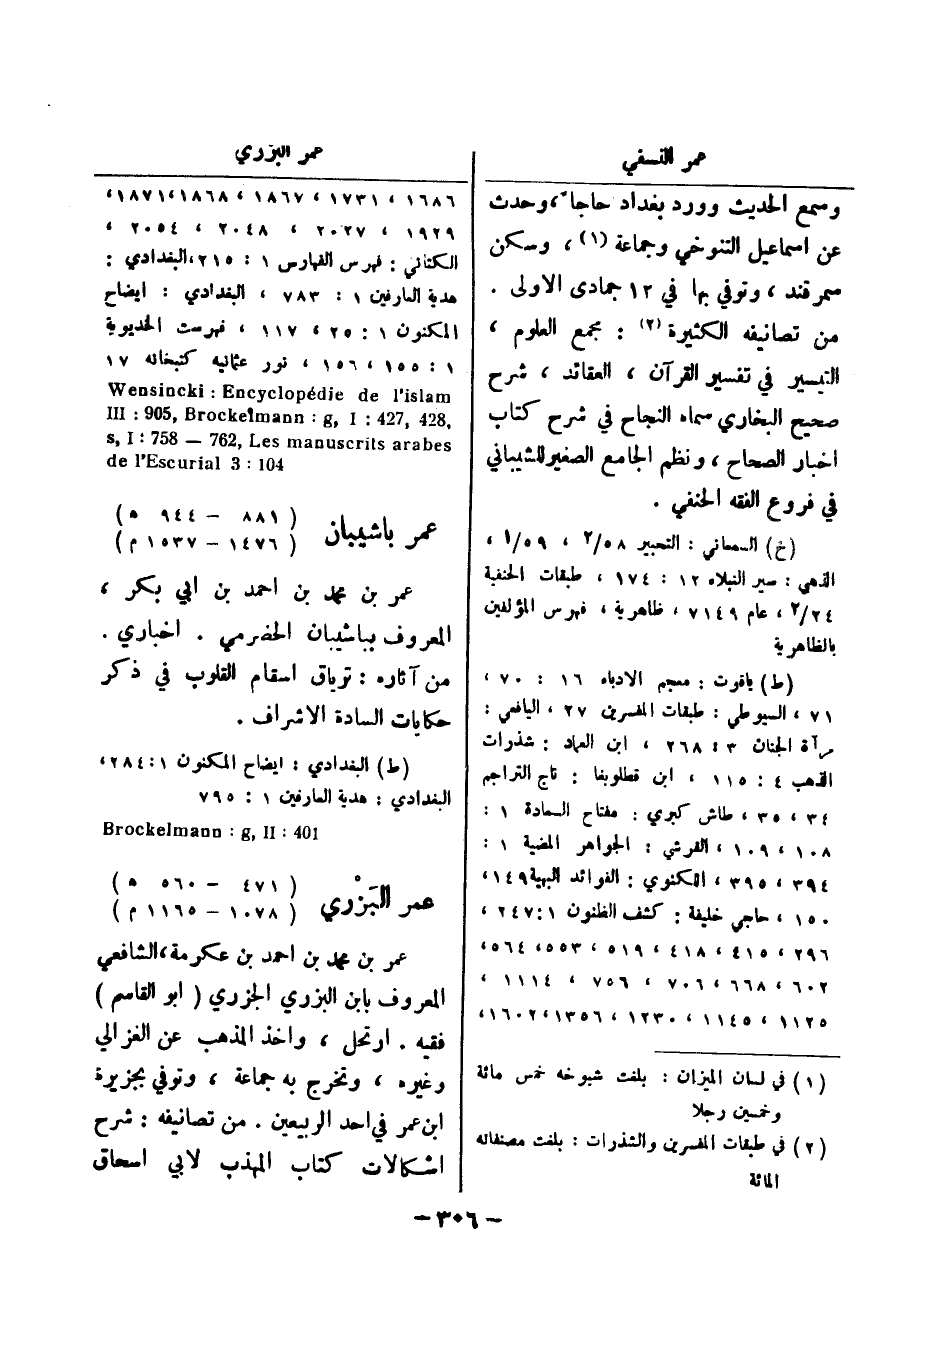 عمر النسفي
وسمع الحديث وورد بغداد حاجاً، وحدث
عن اسماعيل التنوخي وجماعة (١) ، وسكن
سمرقند ، وتوفي بها في ١٢ جمادى الاولى .
من تصانيفه الكثيرة (٢) : مجمع العلوم ،
التيسير في تفسير القرآن ، العقائد ، شرح
صحيح البخاري سماه النجاح في شرح كتاب
اخبار الصحاح ، ونظم الجامع الصغير للشيباني
في فروع الفقه الحنفي .
(خ) السمعاني : التحبير ٥٨/٢ ، ٥٩/١ ،
الذهبي : سير النبلاء ١٢ : ١٧٤ ، طبقات الحنفية
٢/٢٤ ، عام ٧١٤٩ ، ظاهرية ، فهرس المؤلفين
بالظاهرية
(ط) ياقوت : معجم الادباء ١٦ : ٧٠ ،
٧١ ، السيوطي : طبقات المفسرين ٢٧ ، اليافعي :
مرآة الجنان ٣ : ٢٦٨ ، ابن العماد : شذرات
الذهب ٤ : ١١٥ ، ابن قطلوبغا : تاج التراجم
٣٤ ، ٣٥ ، طاش كبري : مفتاح السعادة ١ :
١٠٨ ، ١٠٩ ، القرشي : الجواهر المضية ١ :
٣٩٤ ، ٣٩٥ ، اللكنوي : الفوائد البهية ١٤٩،
١٥٠ ، حاجي خليفة : كشف الظنون ١: ٢٤٧ ،
٢٩٦ ، ٤١٥ ، ٤١٨ ، ٥١٩ ، ٥٥٣، ٥٦٤،
٦٠٢ ، ٦٦٨ ، ٧٠٦ ، ٧٥٦ ، ١١١٤ ،
١١٢٥ ، ١١٤٥ ، ١٢٣٠ ، ١٣٥٦ ،١٦٠٢،
(١) في لسان الميزان : بلغت شيوخه خمس مائة
وخمسين رجلا
(٢) في طبقات المفسرين والشذرات : بلغت مصنفاته
المائة
عمر البزري
١٦٨٦ ، ١٧٣١ ، ١٨٦٧ ، ١٨٦٨ ،١٨٧١،
١٩٢٩ ، ٢٠٢٧ ، ٢٠٤٨ ، ٢٠٥٤ ،
الكتاني : فهرس الفهارس ١ : ٢١٥ ،البغدادي :
هدية العارفين ١ : ٧٨٣ ، البغدادي : ايضاح
المكنون ١ : ٢٥ ، ١١٧ ، فهرست الخديوية
١ : ١٥٥ ، ١٥٦ ، نور عثمانيه كتبخانه ١٧
Wensincki : Encyclopédie de l'islam
III : 905, Brockelmann : g, I : 427, 428,
s, I : 758 — 762, Les manuscrits arabes
de l'Escurial 3 : 104
عمر باشيبان ( ٨٨١ - ٩٤٤ ه )
( ١٤٧٦ - ١٥٣٧ م )
عمر بن محمد بن احمد بن ابي بكر ،
المعروف بباشيبان الحضرمي . اخباري .
من آثاره : ترياق اسقام القلوب في ذكر
حكايات السادة الاشراف .
(ط) البغدادي : ايضاح المكنون ١: ٢٨٤،
البغدادي : هدية العارفين ١ : ٧٩٥
Brockelmann : g, II : 401
عمر البَزْري ( ٤٧١ - ٥٦٠ ه )
( ١٠٧٨ - ١١٦٥ م )
عمر بن محمد بن احمد بن عكرمة، الشافعي
المعروف بابن البزري الجزري ( ابو القاسم )
فقيه . ارتحل ، واخذ المذهب عن الغزالي
وغيره ، وتخرج به جماعة ، وتوفي بجزيرة
ابن عمر في احد الربيعين . من تصانيفه : شرح
اشكالات كتاب المهذب لابي اسحاق
- ٣٠٦ -